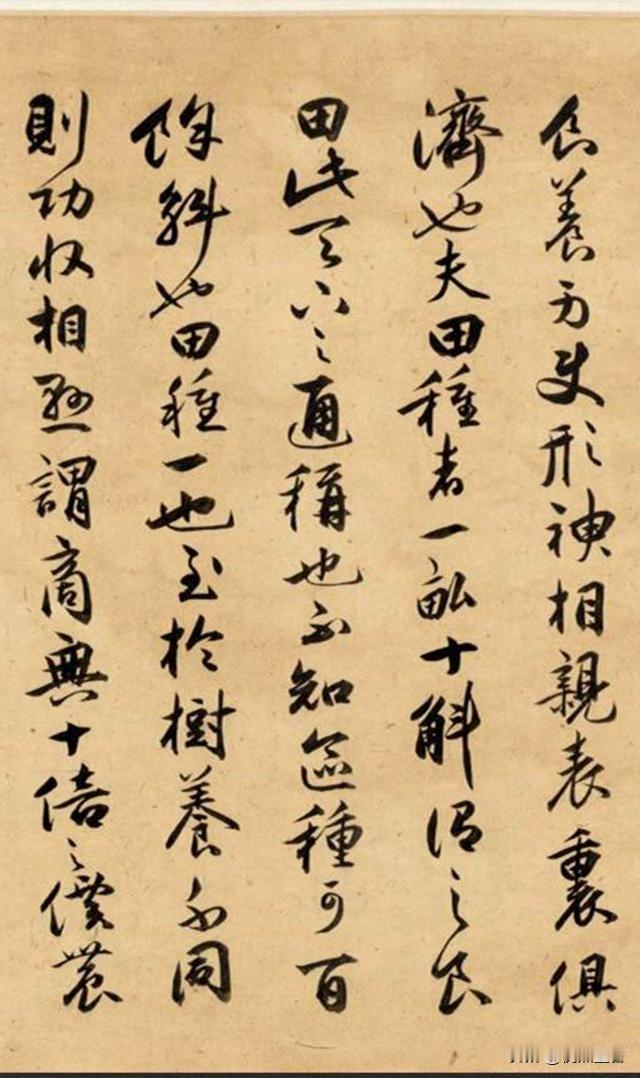 食養身使形神相親表裏俱
濟也夫田種者一畝十斛謂之良
田此天下之通稱也不知區種可百
餘斛也田種一也至於樹養不同
則功收相懸謂商無十倍之價農